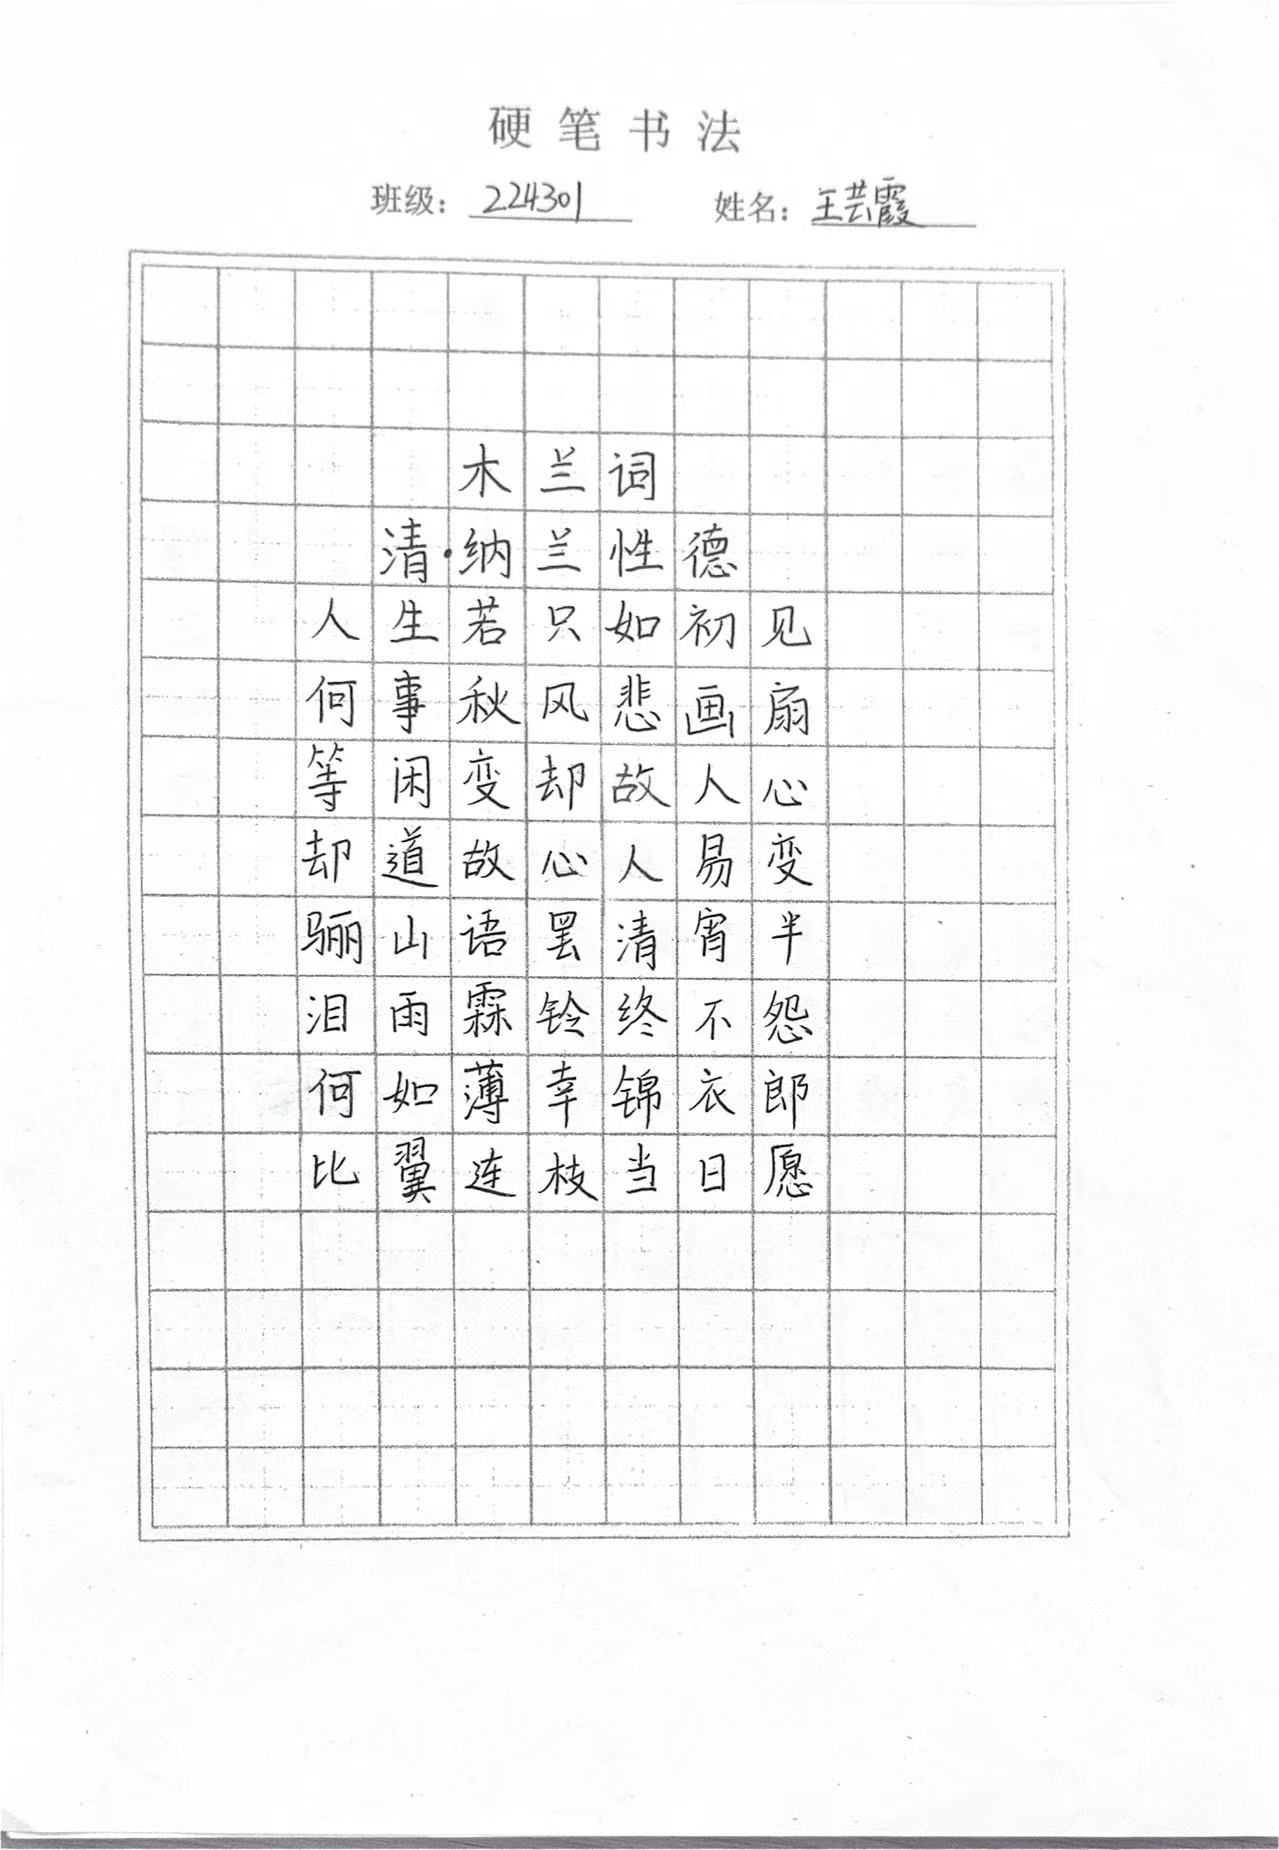 硬笔书法
班级：224301 姓名：王芸霞
木兰词
清·纳兰性德
人生若只如初见
何事秋风悲画扇
等闲变却故人心
却道故心人易变
骊山语罢清宵半
泪雨霖铃终不怨
何如薄幸锦衣郎
比翼连枝当日愿